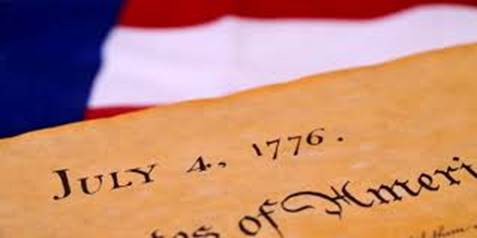 JULY 4, 1776.
of Ameri